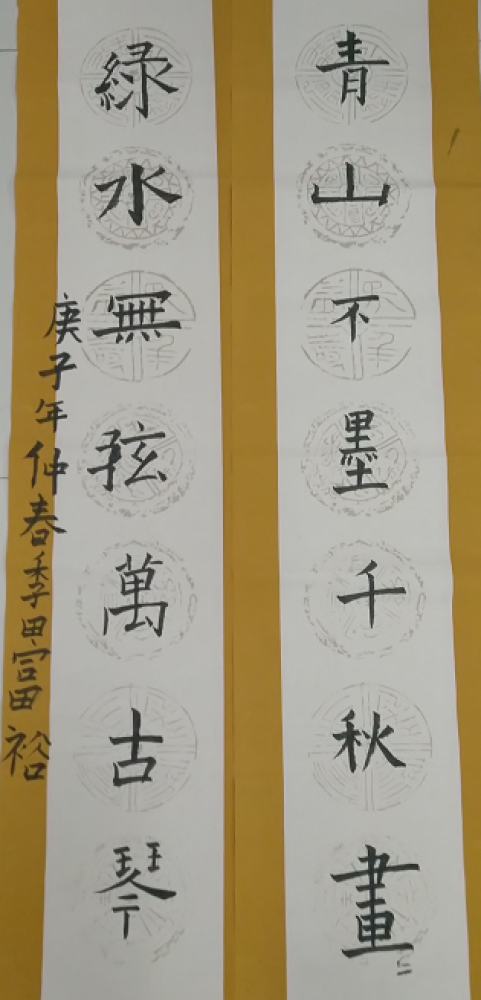 青山不墨千秋畫
緑水無弦萬古琴
庚子年仲春季富裕